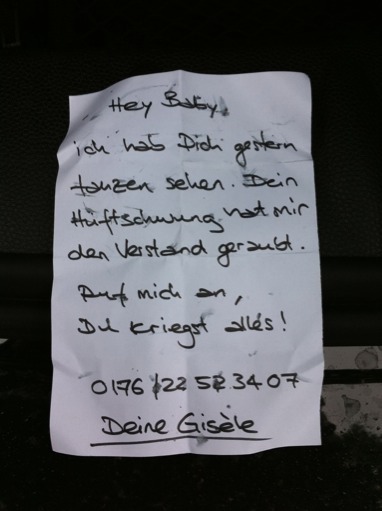 Hey Baby,
ich hab Dich gestern
tanzen sehen. Dein
Hüftschwung hat mir
den Verstand geraubt.
Ruf mich an,
Du kriegst alles!
0176/22 52 34 07
Deine Gisèle